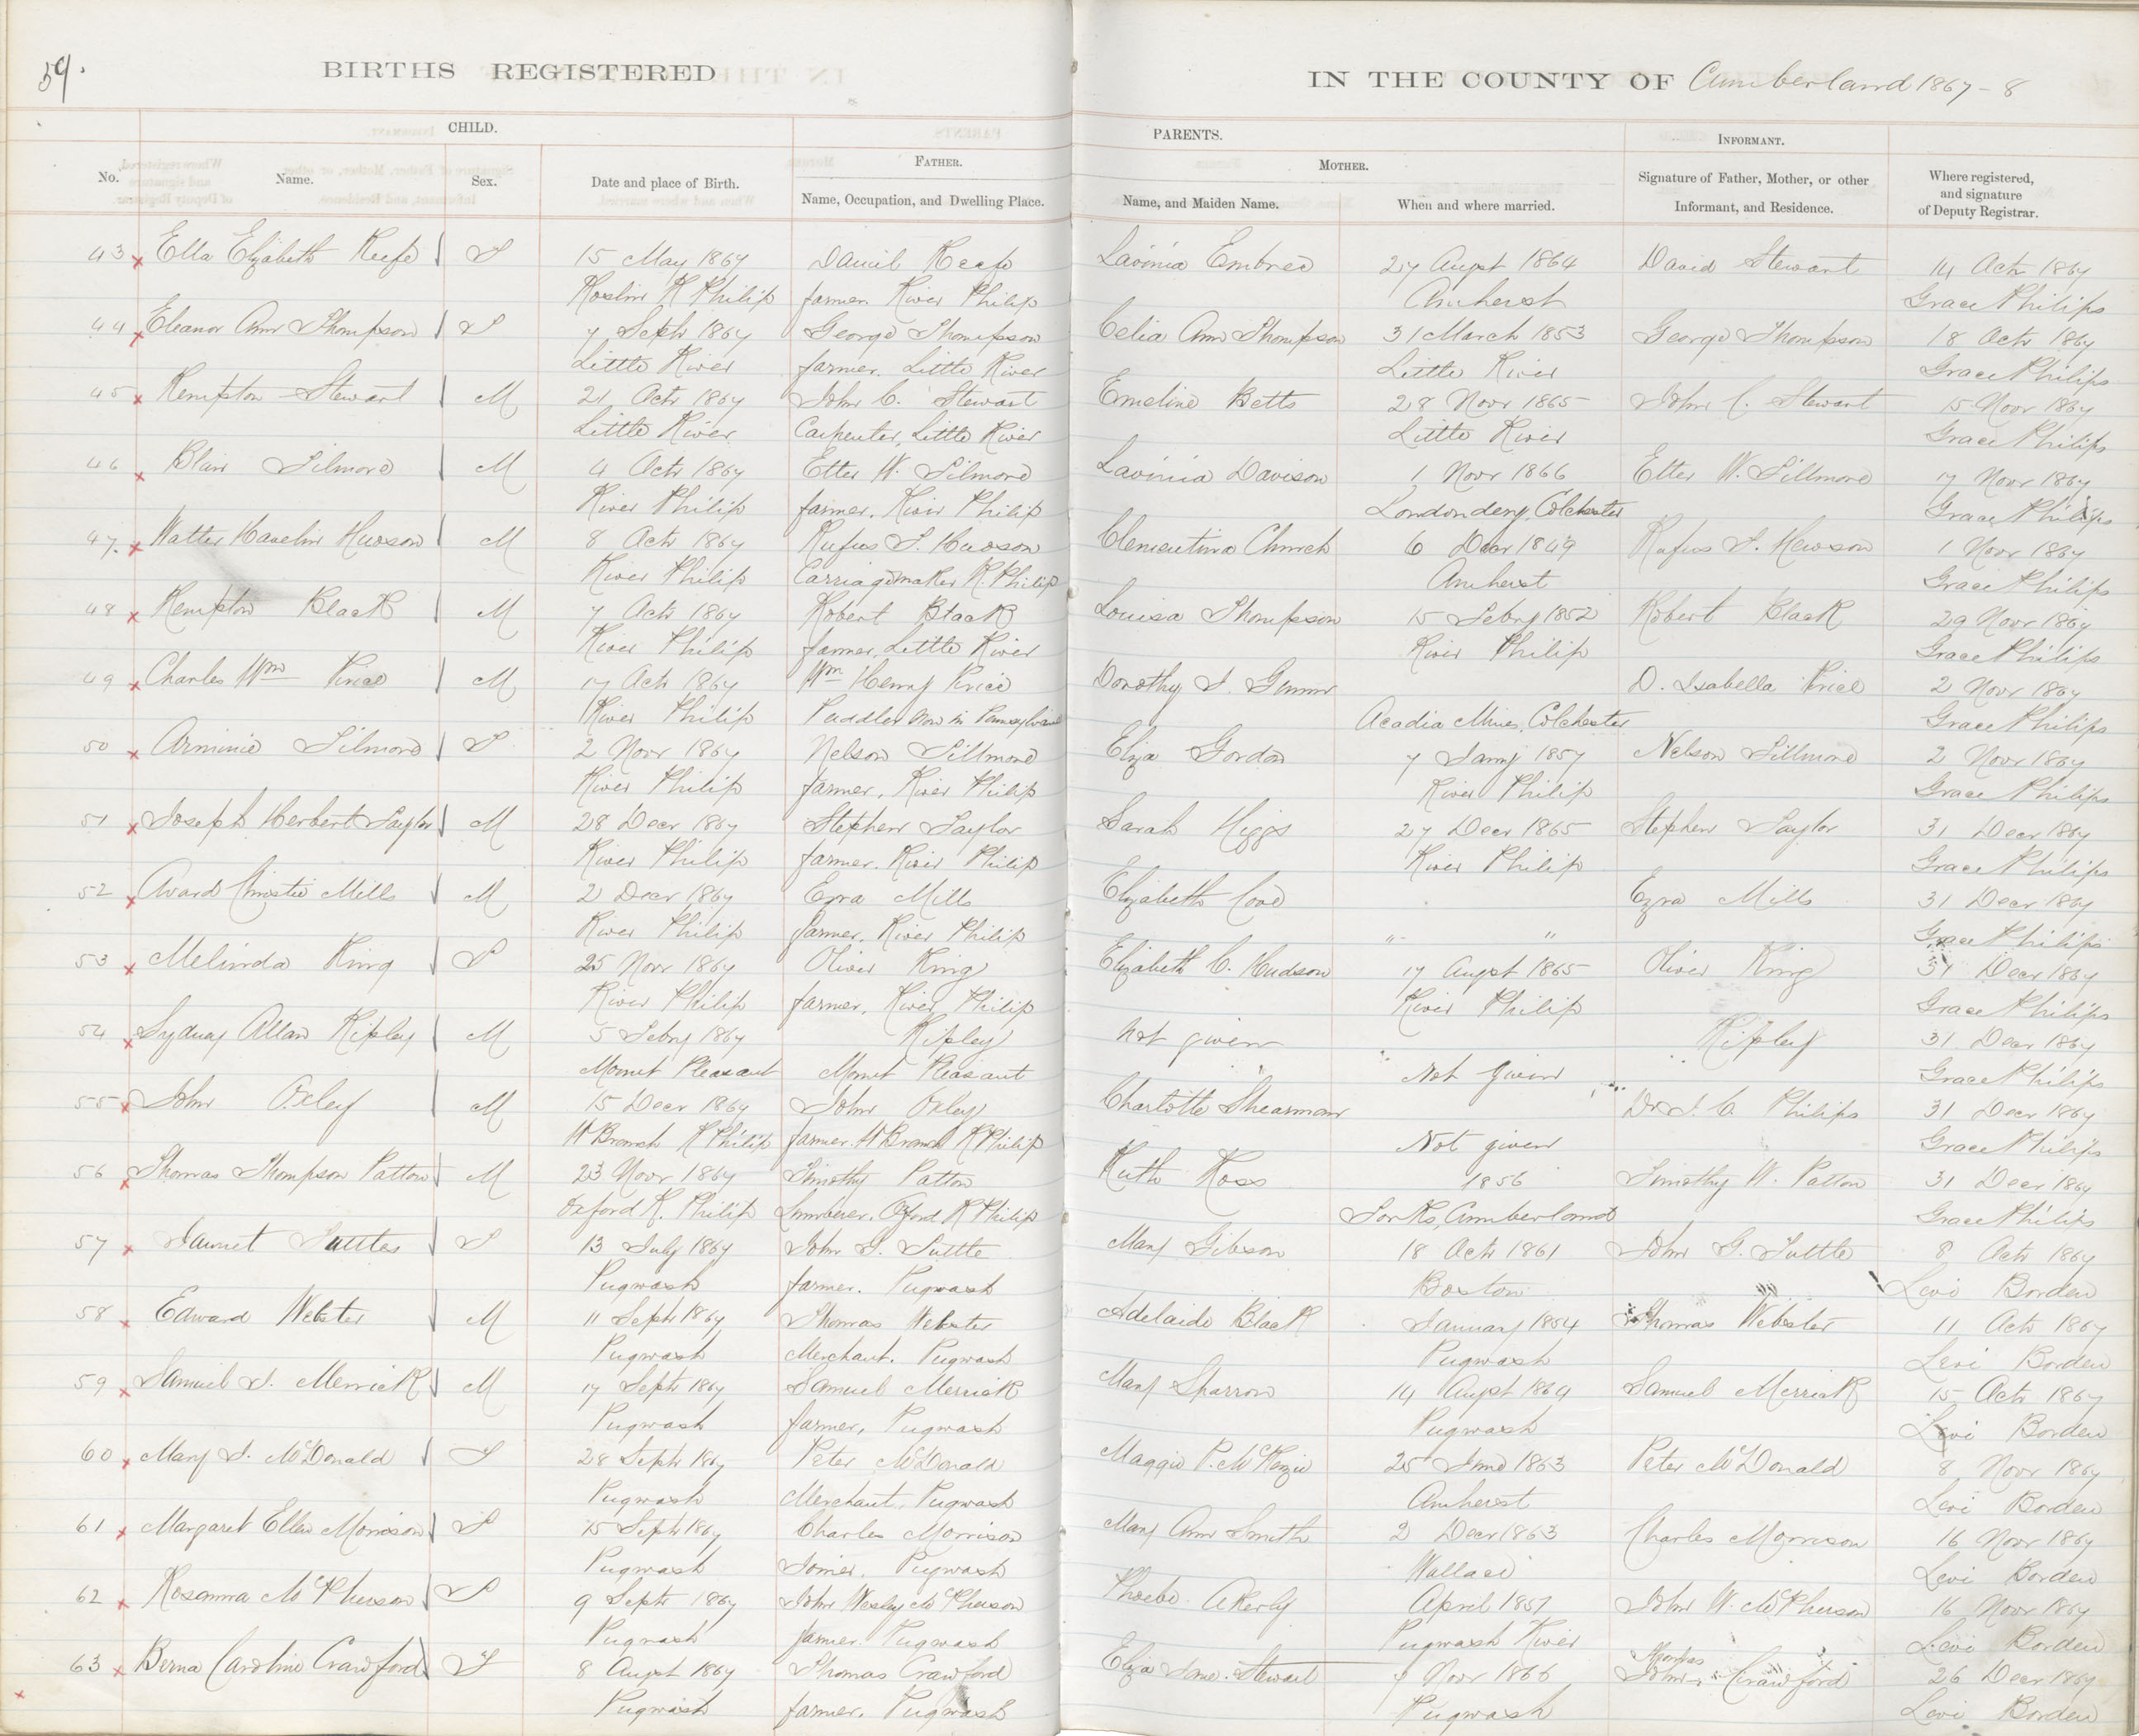 59.
BIRTHS REGISTERED
IN THE COUNTY OF Cumberland 1867-8
CHILD.
PARENTS.
INFORMANT.
FATHER.
MOTHER.
No.
Name.
Sex.
Date and place of Birth.
Name, Occupation, and Dwelling Place.
Name, and Maiden Name.
When and where married.
Signature of Father, Mother, or other
Informant, and Residence.
Where registered,
and signature
of Deputy Registrar.
43 x Ella Elizabeth Keefe F 15 May 1867 Daniel Keefe Lavinia Embree 27 Augst 1864 David Stewart 14 Octr 1867
Roslin R Philip farmer. River Philip Amherst Grace Philips
44 x Eleanor Ann Thompson F 7 Septr 1867 George Thompson Celia Ann Thompson 31 March 1853 George Thompson 18 Octr 1867
Little River farmer. Little River Little River Grace Philips
45 x Kempton Stewart M 21 Octr 1867 John C. Stewart Emeline Betts 28 Novr 1865 John C. Stewart 15 Novr 1867
Little River Carpenter, Little River Little River Grace Philips
46 x Blair Filmore M 4 Octr 1867 Etter W. Filmore Lavinia Davison 1 Novr 1866 Etter W. Fillmore 17 Novr 1867
River Philip farmer. River Philip Londonderry, Colchester Grace Philips
47. x Walter Havelin Hewson M 8 Octr 1867 Rufus F. Hewson Clementina Church 6 Decr 1849 Rufus F. Hewson 1 Novr 1867
River Philip Carriagemaker R. Philip Amherst Grace Philips
48 x Kempton Black M 7 Octr 1867 Robert Black Louisa Thompson 15 Febry 1852 Robert Black 29 Novr 1867
River Philip farmer, Little River River Philip Grace Philips
49 x Charles Wm Price M 17 Octr 1867 Wm Henry Price Dorothy I. D. Isabella Price 2 Novr 1867
River Philip Puddler now in Pennsylvania Acadia Mines, Colchester Grace Philips
50 x Arminie Filmore F 2 Novr 1867 Nelson Fillmore Eliza Gordon 7 Jany 1857 Nelson Fillmore 2 Novr 1867
River Philip farmer, River Philip River Philip Grace Philips
51 x Joseph Herbert Taylor M 28 Decr 1867 Stephen Taylor Sarah Higgs 27 Decr 1865 Stephen Taylor 31 Decr 1867
River Philip farmer. River Philip River Philip Grace Philips
52 x Avard Christie Mills M 2 Decr 1867 Ezra Mills Elizabeth Cove Ezra Mills 31 Decr 1867
River Philip farmer. River Philip " " Grace Philips
53 x Melinda King F 25 Novr 1867 Oliver King Elizabeth C. Hudson 17 Augst 1865 Oliver King 31 Decr 1867
River Philip farmer, River Philip River Philip Grace Philips
54 x Sydney Allan Ripley M 5 Febry 1867 Ripley Not given Ripley 31 Decr 1867
Mount Pleasant Mount Pleasant Not given Grace Philips
55 x John Oxley M 15 Decr 1867 John Oxley Charlotte Shearman Dr. J. C. Philips 31 Decr 1867
W Branch R Philip farmer. W Branch R Philip Not given Grace Philips
56 x Thomas Thompson Patton M 23 Novr 1867 Timothy Patton Ruth Ross 1856 Timothy W. Patton 31 Decr 1867
Oxford R. Philip Lumberer. Oxford R Philip Forks, Cumberland Grace Philips
57 x Jannet Tuttles F 13 July 1867 John G. Tuttle Mary Gibson 18 Octr 1861 John G. Tuttle 8 Octr 1867
Pugwash farmer. Pugwash Boston Levi Borden
58 x Edward Webster M 11 Septr 1867 Thomas Webster Adelaide Black January 1854 Thomas Webster 11 Octr 1867
Pugwash Merchant. Pugwash Pugwash Levi Borden
59 x Samuel S. Merrick M 17 Septr 1867 Samuel Merrick Mary Sparrow 14 Augst 1864 Samuel Merrick 15 Octr 1867
Pugwash farmer, Pugwash Pugwash Levi Borden
60 x Mary S. McDonald F 28 Septr 1867 Peter McDonald Maggie P. McKenzie 25 June 1863 Peter McDonald 8 Novr 1867
Pugwash Merchant, Pugwash Amherst Levi Borden
61 x Margaret Ellen Morrison F 15 Septr 1867 Charles Morrison Mary Ann Smith 2 Decr 1863 Charles Morrison 16 Novr 1867
Pugwash Joiner. Pugwash Wallace Levi Borden
62 x Rosanna McPherson F 9 Septr 1867 John Wesley McPherson Phoebe Akerly April 1857 John W. McPherson 16 Novr 1867
Pugwash farmer. Pugwash Pugwash River Levi Borden
Thomas
63 x Berna Caroline Crawford F 8 Augst 1867 Thomas Crawford Eliza Jane Stewart 7 Novr 1866 John Crawford 26 Decr 1867
x Pugwash farmer. Pugwash Pugwash Levi Borden